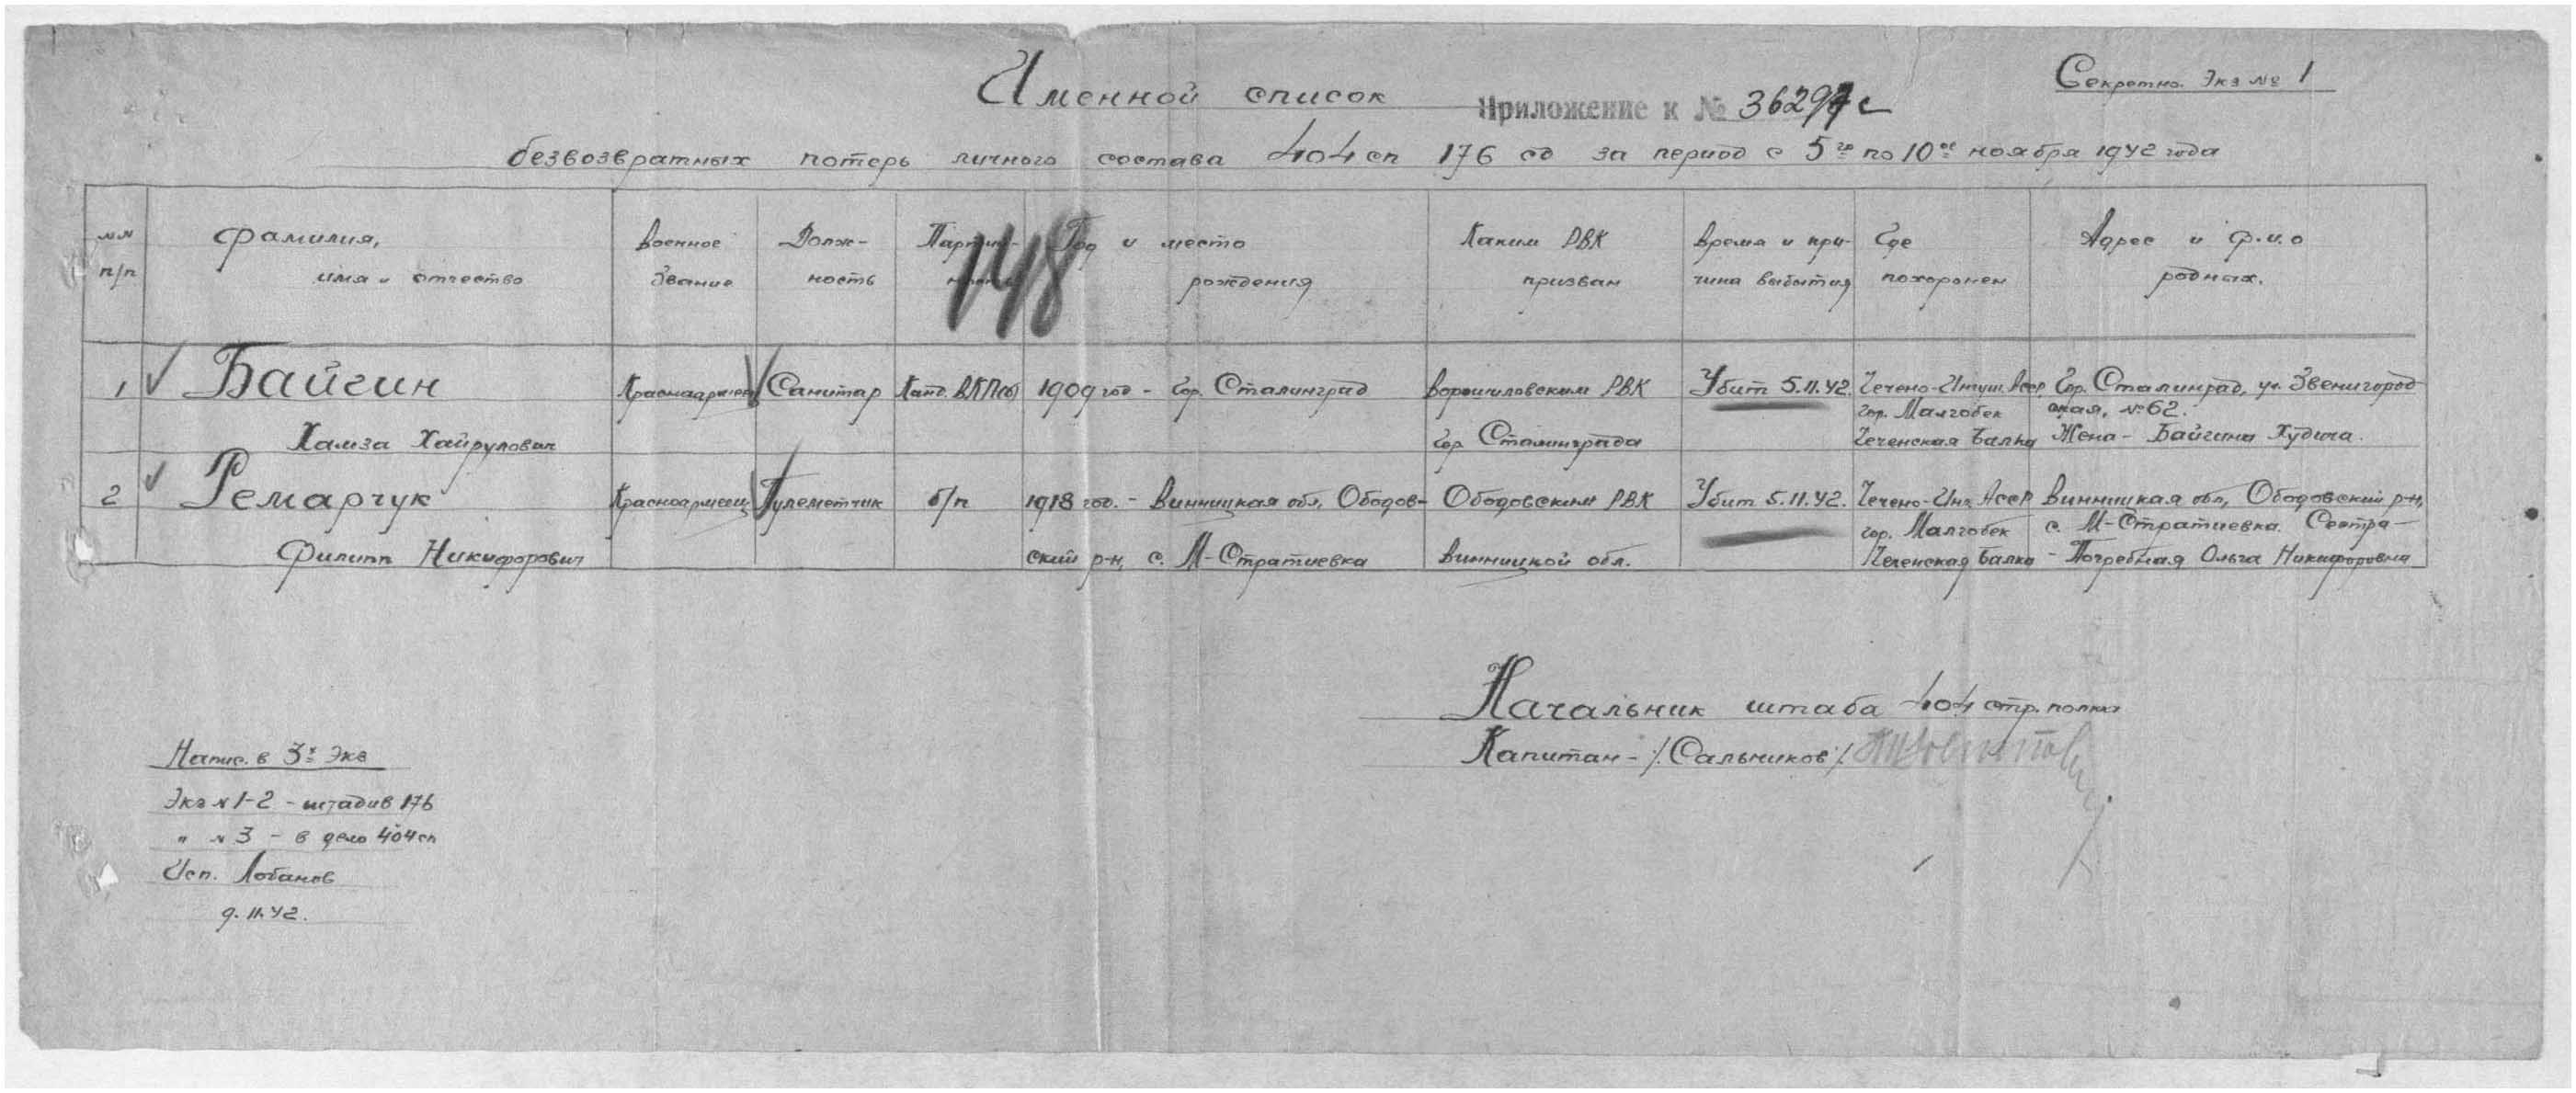 Секретно. Экз № 1
Именной список
Приложение к № 36294с
безвозвратных потерь личного состава 404 сп 176 сд за период с 5го по 10ое ноября 1942 года
№№ п/п
фамилия, имя и отчество
Военное звание
Долж-ность
Год и место рождения
Каким РВК призван
Время и при-чина выбытия
Где похоронен
Адрес и ф.и.о родных.
148
1 Байгин Красноармеец Санитар Канд. ВКП(б) 1909 год - гор. Сталинград Ворошиловским РВК Убит 5.11.42. Чечено-Ингуш. Асср, Гор. Сталинград, ул. Звенигород-
гор. Малгобек ская, №62.
Хамза Хайрулович гор Сталинграда Чеченская Балка Жена - Байгина Худича.
2 Ремарчук Красноармеец Пулеметчик б/п 1918 год. - Винницкая обл, Ободов- Ободовским РВК Убит 5.11.42. Чечено-Инг. Асср Винницкая обл, Ободовский р-н,
гор. Малгобек с. М-Стратиевка. Сестра -
Филипп Никифорович ский р-н, с. М-Стратиевка Винницкой обл. Чеченская Балка - Погребная Ольга Никифоровна
Начальник штаба 404 стр. полка
Капитан - /Сальников/
Напис. в 3х Экз
Экз №1-2 - штадив 176
" № 3 - в дело 404 сп
Исп. Лобанов
9.11.42.